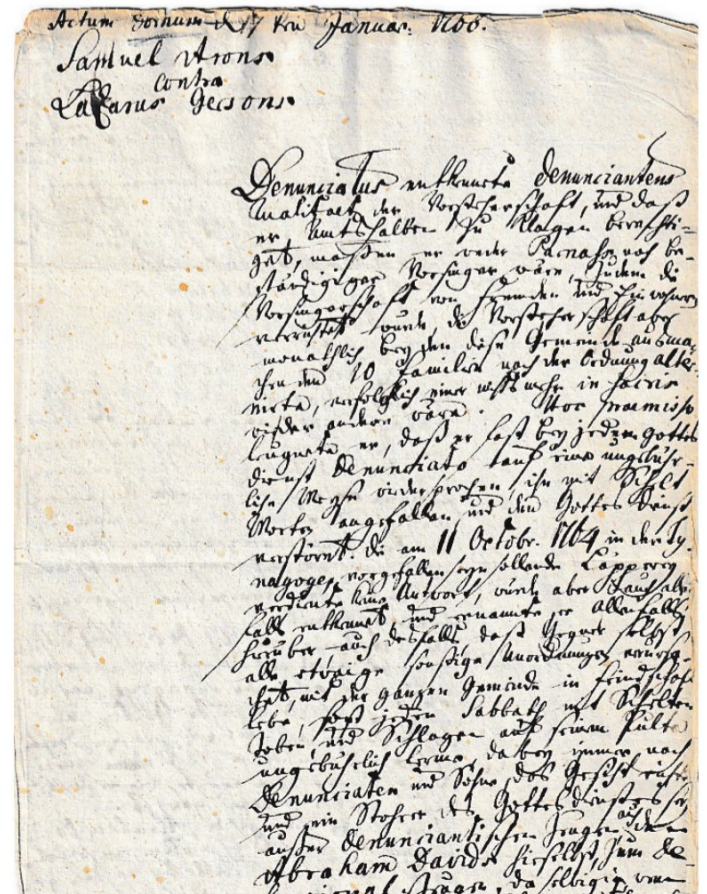 Actum Dornum d. 17 ten Januar: 1766.
Samuel Arons
contra
Lazarus Gersons
Denunciatus entkennete Denunciantens
Qualitaet der Vorsteherschaft, und daß
er Amtshalben zu klagen berechti=
get, maßen er weder Parnass noch be=
ständiger Vorsinger wäre, indem die
Vorsingerschaft von Fremden und Einwohnern
verrichtet würde, die Vorsteherschaft aber
monathlich bey den diese Gemeinde ausma=
chenden 10 Familien nach der Ordnung alter=
nirte, einer nichts mehr in sacris
als der andere wäre. Hoc praemisso
leugnete er, daß er fast bey jedem Gottes
dienst Denunciato auf eine ungebühr=
liche Weyse widersprochen, ihn mit Schelt
Worten angefallen und den Gottes Dienst
verstöret. die am 11 Octobr. 1764 in der Sy=
nagoge vorgefallen seyn sollende Läpperey
verdiente keine Antwort, würde aber auch allen=
falls entkennet, und ernannte er allenfalls
hierüber auch desfalls, daß Gegner selbst
alle etwaige sonstige Unordnungen verursa=
chet, mit der ganzen Gemeinde in Feindschaft
lebe, fast jeden Sabbath mit Schelten
toben und Schlagen auf seinem Pulte
ungebührlich lerme, dabey immer nach
Denunciaten und Söhne das Gesicht richte
und ein Stöhrer des Gottesdienstes sey
außer denunciantischen Zeugen auch den
Abraham Davids hieselbst, zum De=
Zeugen, da selbige von